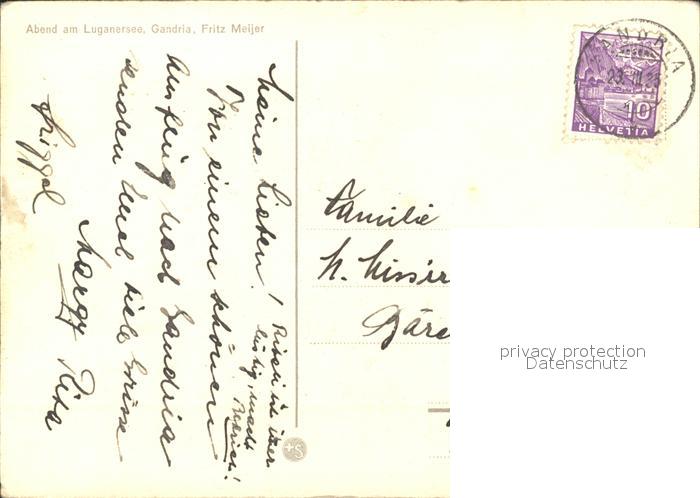 Abend am Luganersee, Gandria, Fritz Meijer
GANDRIA
10
HELVETIA
Meine Lieben!
Von einem schönen
Ausflug nach Gandria
senden Euch viele Grüsse
Margy Rita
lustig, macht
Familie
H.
privacy protection
Datenschutz
+S